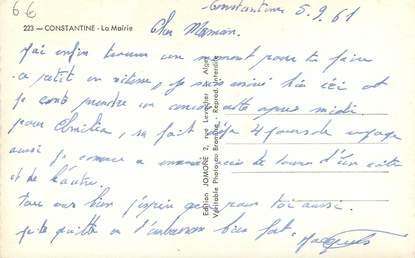 66
Constantine 5.9.61
223 — CONSTANTINE - La Mairie
Cher Maman.
J'ai enfin trouvé un moment pour te faire
ce petit en vitesse, je suis arrivé hier ici et
je compte prendre un cette après midi
pour, sa fait déjà 4 jours de voyage
aussi je commence a en avoir de d'un côté
et de l'autre.
Tout va bien j'espère que pour toi aussi.
je te quitte en t'embrassant bien fort. Jacques
Edition JOMONE 2, rue Levacher - Alger
Véritable Photo au Bromure - Reprod. interdite